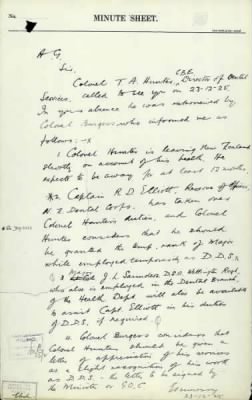 No.
MINUTE SHEET.
A G
Sir,
C.B.E.
Colonel T. A. Hunter, Director of Dental
Services, called to see you on 23-12-25.
In your absence he was interviewed by
Colonel Burgess, who informed me as
follows:-
1 Colonel Hunter is leaving New Zealand
shortly on account of his health. He
expects to be away for at least 12 months.
2 Captain R. D. Elliott, Reserve of Officers
N.Z. Dental Corps. has taken over
Colonel Hunter's duties, and Colonel
Hunter considers that he should
be granted the temp. rank of Major
while employed temporarily as D.D.S.
3 Major J L Saunders D.S.O. Wellington Regt.
who is employed in the Dental Branch
of the Health Dept will also be available
to assist Capt. Elliott in his duties
of D.D.S. if required.
4 Colonel Burgess considers that
Colonel Hunter should be given a
letter of appreciation of his services
as a slight recognition of his work
as D.D.S. the letter to be signed by
the Minister or G.O.C.
23-12-25